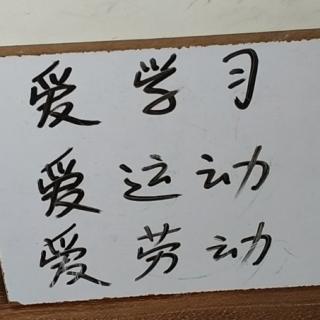 爱学习
爱运动
爱劳动